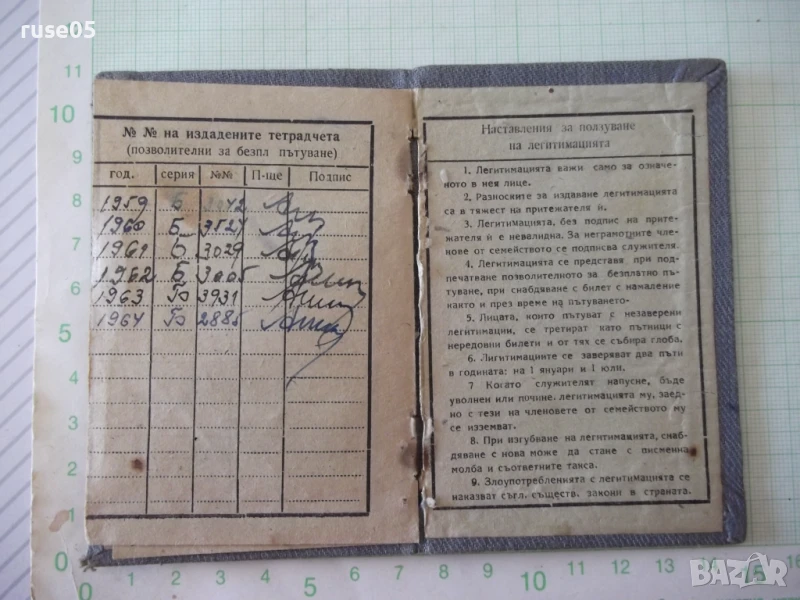 ruse05
№ № на издадените тетрадчета
(позволителни за безпл пътуване)
год. серия №№ П-ще Подпис
1959 Б
1960 Б 3527
1961 Б 3029
1962 Б
1963 Б 3931
1964 Б 2885
Наставления за ползуване
на легитимацията
1. Легитимацията важи само за означе-
ното в нея лице.
2, Разноските за издаване легитимацията
са в тяжест на притежателя ѝ.
3. Легитимация, без подпис на прите-
жателя ѝ е невалидна. За неграмотните чле-
нове от семейството се подписва служителя.
4. Легитимацията се представя при под-
печатване позволителното за безплатно пъ-
туване, при снабдяване с билет с намаление
както и през време на пътуването-
5. Лицата, които пътуват с незаверени
легитимации, се третират като пътници с
нередовни билети и от тях се събира глоба.
6. Легитимациите се заверяват два пъти
в годината: на 1 януари и 1 юли.
7 Когато служителят напусне, бъде
уволнен или почине, легитимацията му, заед-
но с тези на членовете от семейството му
се изземват.
8. При изгубване на легитимацията, снаб-
дяване с нова може да стане с писменна
молба и съответните такса.
9. Злоупотребленията с легитимацията се
наказват съгл. съществ. закони в страната.
11
10
9
8
7
6
5
4
3
2
1
0
0 1 2 3 4 5 6 7 8 9 10 11 12 13 14 15 16
BAZAR